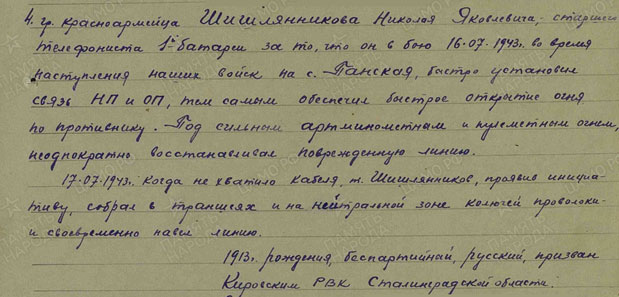 4. гр. красноармейца Шишлянникова Николая Яковлевича, старшего
телефониста 1й батареи за то, что он в бою 16.07.1943г. во время
наступления наших войск на с. Панская, быстро установил
связь НП и ОП, тем самым обеспечил быстрое открытие огня
по противнику. Под сильным артминометным и пулеметным огнем,
неоднократно восстанавливал поврежденную линию.
17.07.1943г. когда не хватило кабеля, т. Шишлянников, проявив инициа-
тиву, собрал в траншеях и на нейтральной зоне колючей проволоки
и своевременно навел линию.
1913г. рождения, беспартийный, русский, призван
Кировским РВК Сталинградской области.